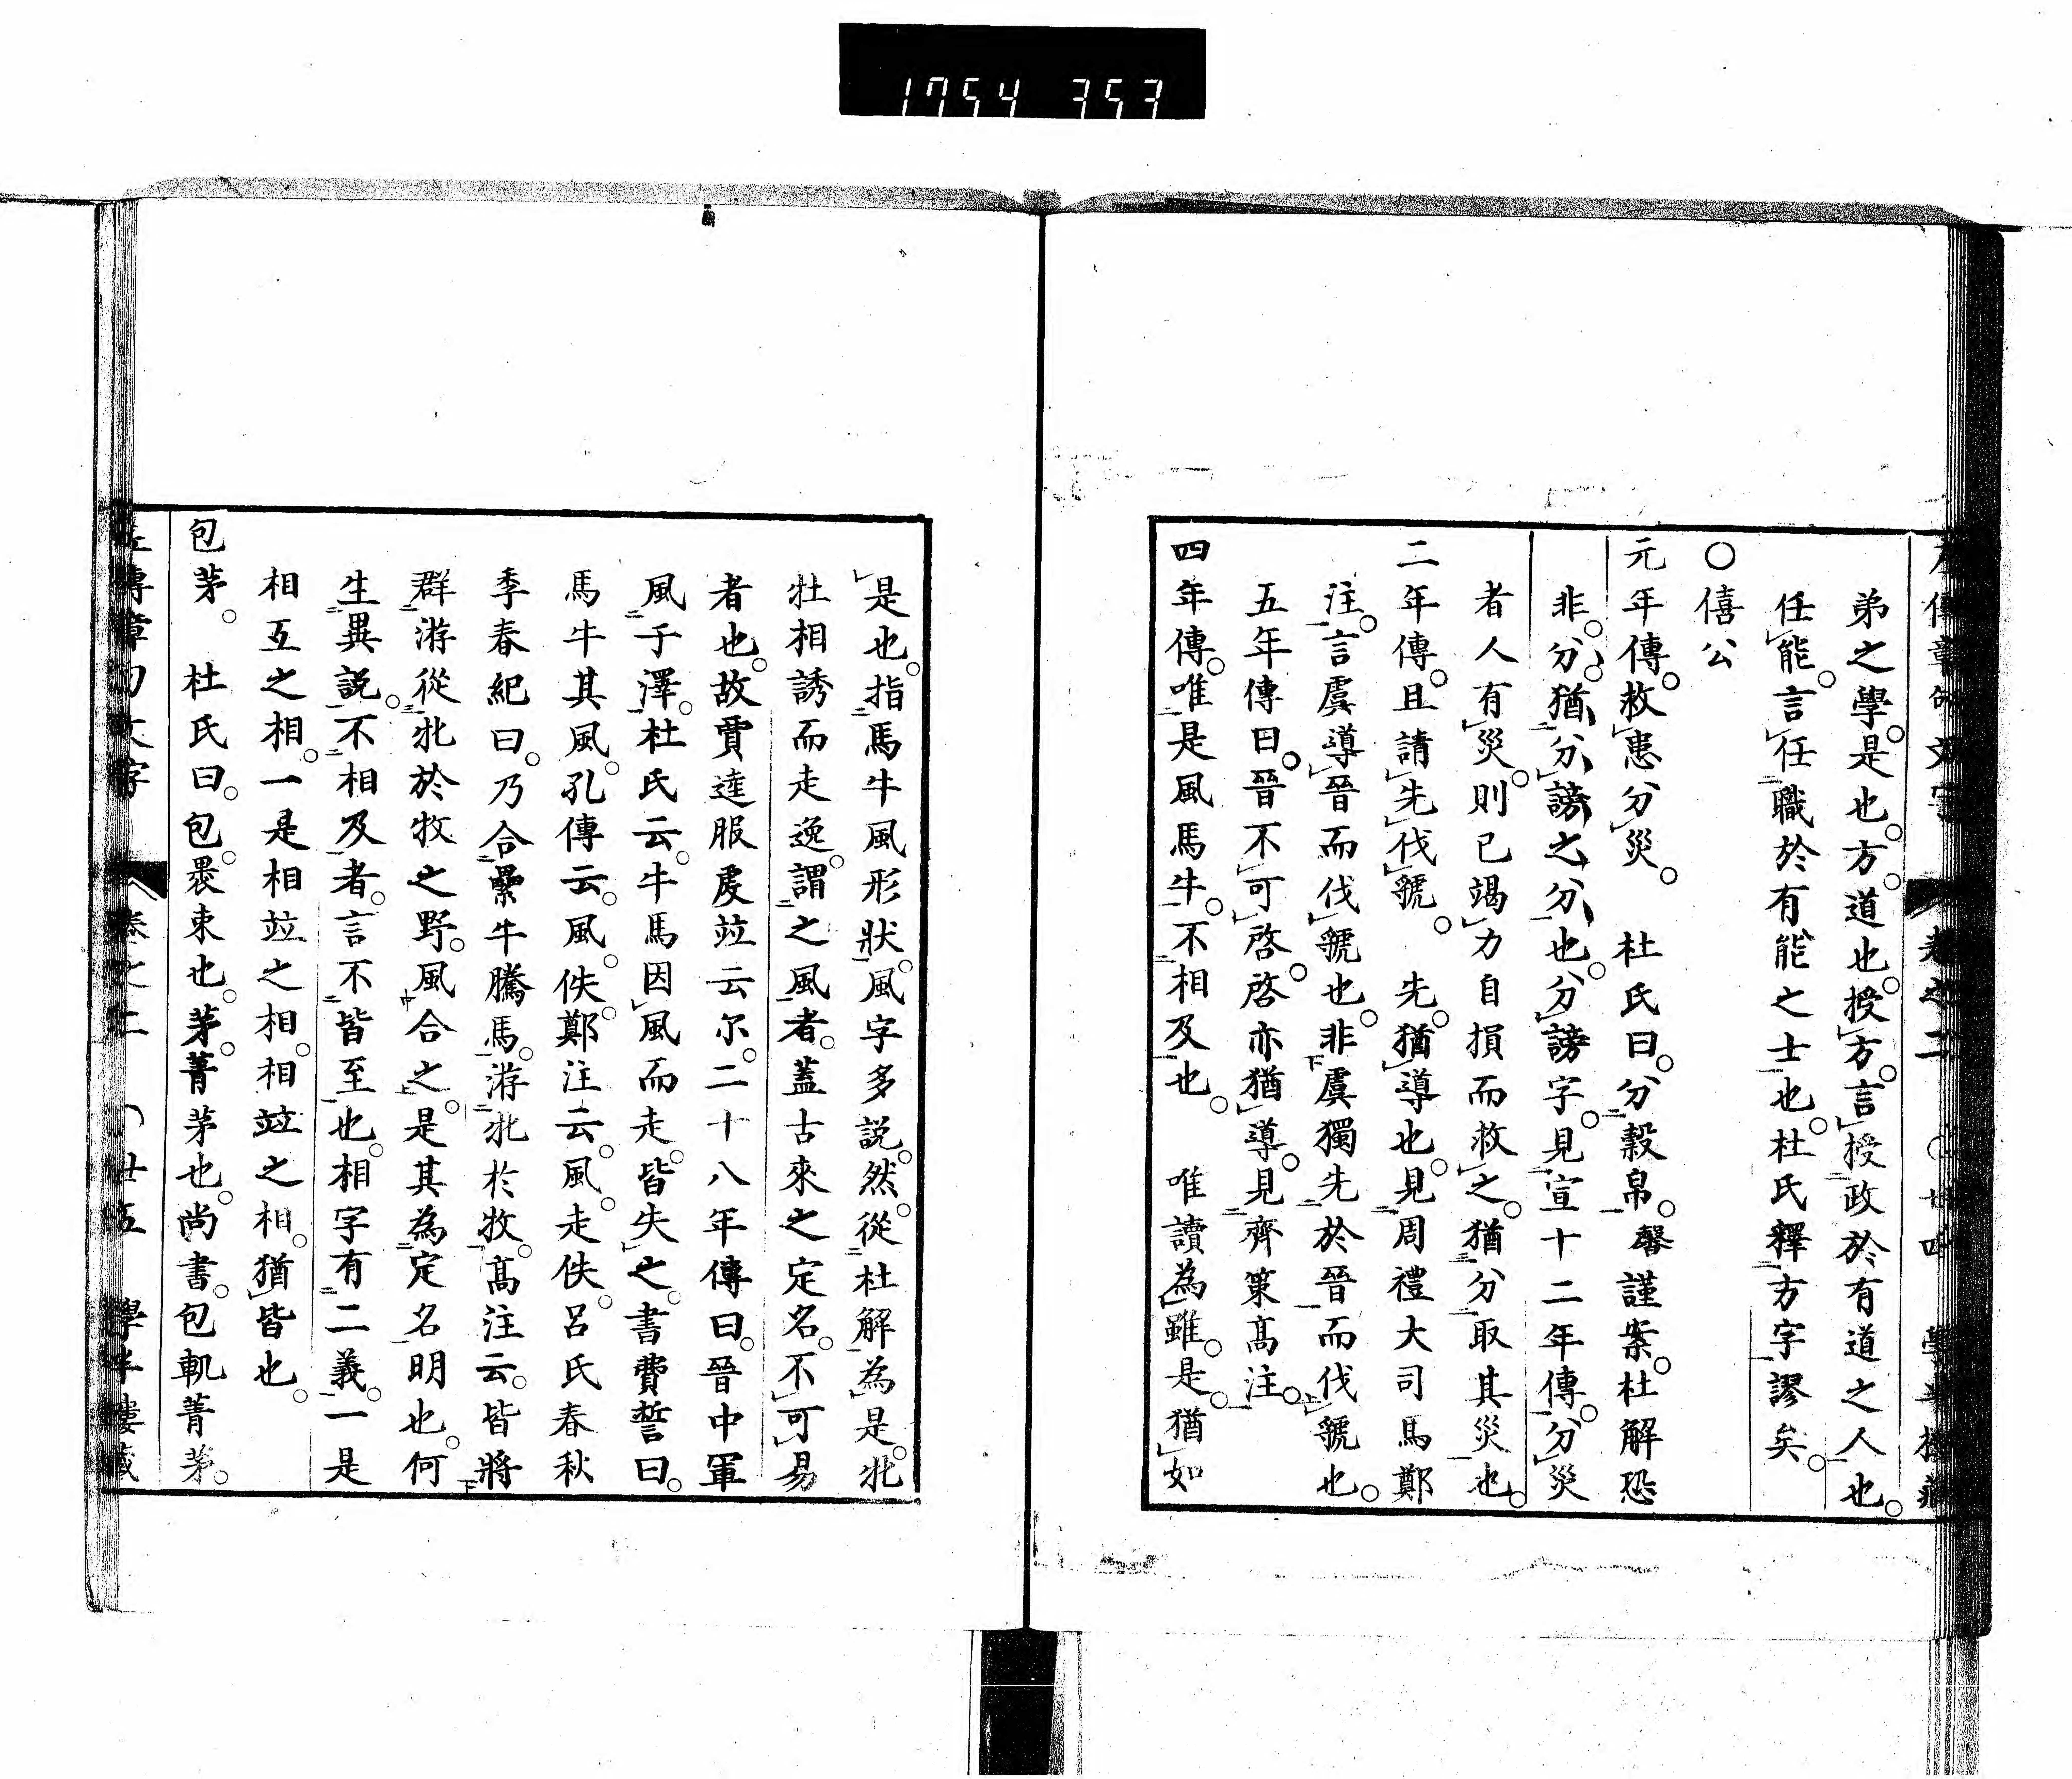 1754 353
弟之學。是也。方。道也。授方。言授政於有道之人也。
任能。言任職於有能之士也。杜氏釋方字謬矣。
○僖公
元年傳。救患分災。 杜氏曰。分穀帛。 馨謹案。杜解恐
非。分。猶分謗之分也。分謗字。見宣十二年傳。分災
者人有災。則已竭力自損而救之。猶分取其災也。
二年傳。且請先伐虢。 先。猶導也。見周禮大司馬鄭
注。言虞導晉而伐虢也。非虞獨先於晉而伐虢也。
五年傳曰。晉不可啓。啓亦猶導。見齊策高注。
四年傳。唯是風馬牛。不相及也。 唯讀為雖。是。猶如
是也。指馬牛風形狀。風字多説。然。從杜解為是。牝
牡相誘而走逸。謂之風者。蓋古來之定名。不可易
者也。故賈逵服虔竝云尔。二十八年傳曰。晉中軍
風于澤。杜氏云。牛馬因風而走。皆失之。書費誓曰。
馬牛其風。孔傳云。風。佚。鄭注云。風。走佚。呂氏春秋
季春紀曰。乃合纍牛騰馬。游牝於牧。高注云。皆將
群游從牝於牧之野。風合之。是其為定名明也。何
生異説。不相及者。言不皆至也。相字有二義。一是
相互之相。一是相竝之相。相竝之相。猶皆也。
包茅。 杜氏曰。包。褁束也。茅。菁茅也。尚書。包軌菁茅。
左傳章句文字 卷之二 ○廿五 學半樓藏